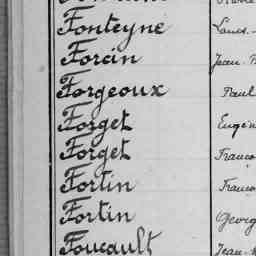 Fonteyne Louis
Forcin Jean
Forgeoux Paul
Forget Eugén
Forget Franço
Fortin Franço
Fortin Georg
Foucault Jean